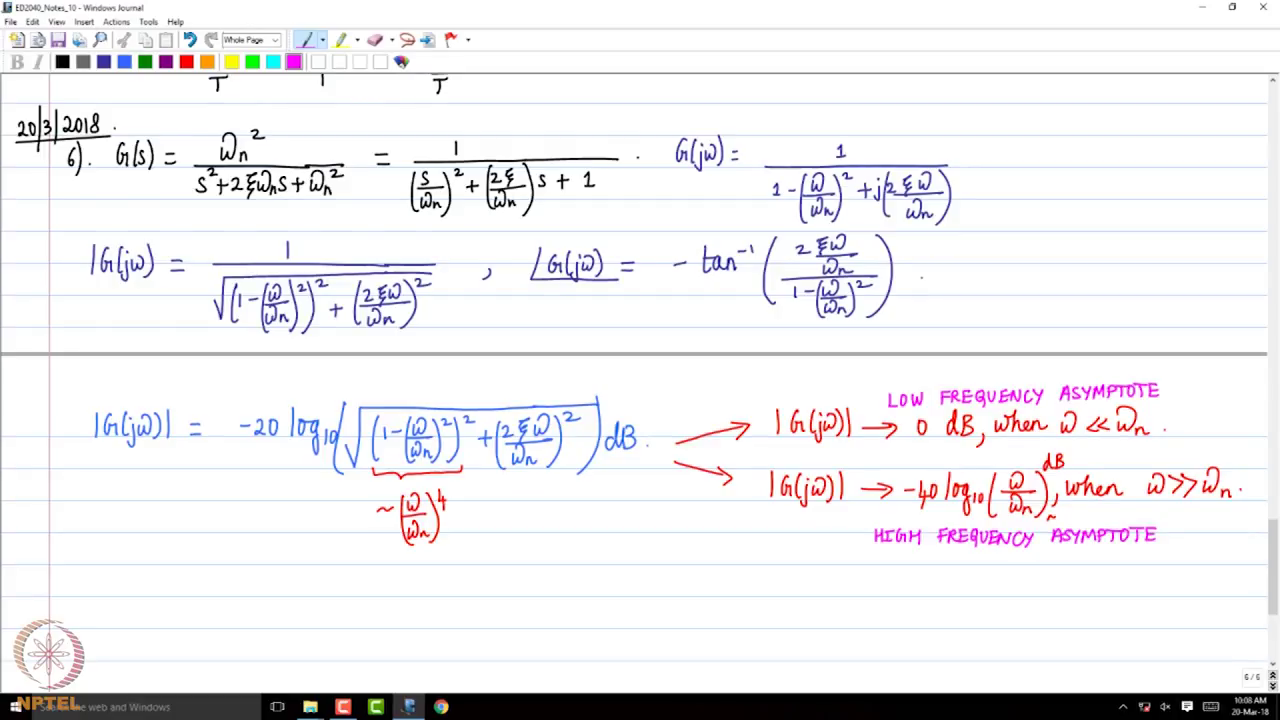 ED2040_Notes_10 - Windows Journal
File Edit View Insert Actions Tools Help
Whole Page
B I
T 1 T
20|3|2018.
6). G(s) = ωn² / (s² + 2ξωns + ωn²) = 1 / ((s/ωn)² + (2ξ/ωn)s + 1) . G(jω) = 1 / (1-(ω/ωn)² + j(2ξω/ωn))
|G(jω) = 1 / √((1-(ω/ωn)²)² + (2ξω/ωn)²) , ∠G(jω) = - tan⁻¹((2ξω/ωn) / (1-(ω/ωn)²)) .
LOW FREQUENCY ASYMPTOTE
|G(jω)| = -20 log₁₀(√((1-(ω/ωn)²)² + (2ξω/ωn)²)) dB.
|G(jω)| → 0 dB, when ω ≪ ωn.
|G(jω)| → -40 log₁₀(ω/ωn) dB, when ω >> ωn.
~(ω/ωn)⁴
HIGH FREQUENCY ASYMPTOTE
6 / 6
NPTEL
Search the web and Windows
10:08 AM
20-Mar-18